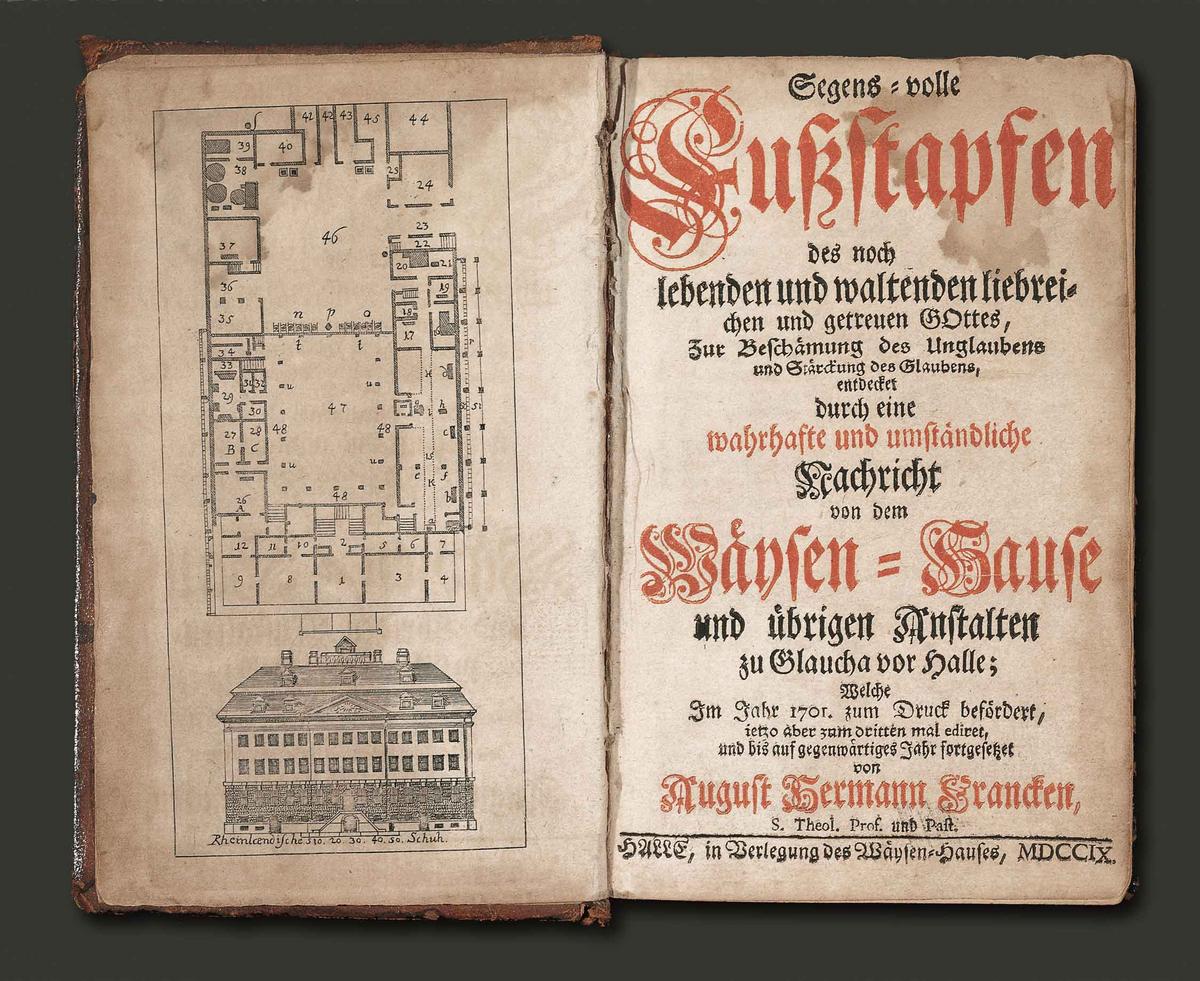 41 42 43 45 44
39 40
38
25
24
37
46
23
22
20 21
36
19
18
35
n p o
17
34
t t
33
31 32
29
u u
30
47
48 48
27 28
B C
u u
26
A
48
12 11 10 2 5 6 7
9 8 1 3 4
Rheinlœndische 510. 20. 30. 40. 50. Schuh.
Segens=volle
Fußſtapfen
des noch
lebenden und waltenden liebrei=
chen und getreuen GOttes,
Zur Beſchämung des Unglaubens
und Stärckung des Glaubens,
entdecket
durch eine
wahrhafte und umſtändliche
Nachricht
von dem
Wäyſen=Hauſe
und übrigen Anſtalten
zu Glaucha vor Halle;
Welche
Im Jahr 1701. zum Druck befördert,
ietzo aber zum dritten mal ediret,
und bis auf gegenwärtiges Jahr fortgeſetzet
von
Auguſt Hermann Francken,
S. Theol. Prof. und Paſt.
HALLE, in Verlegung des Wäyſen-Hauſes, MDCCIX.